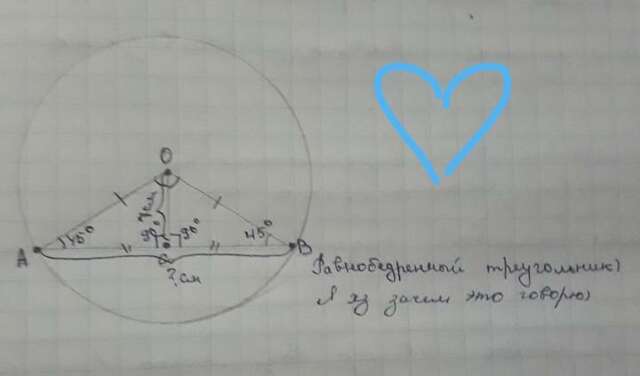 O
7см
45°
90°
90°
45°
A
B
? см
Равнобедренный треугольник)
Я хз зачем это говорю)